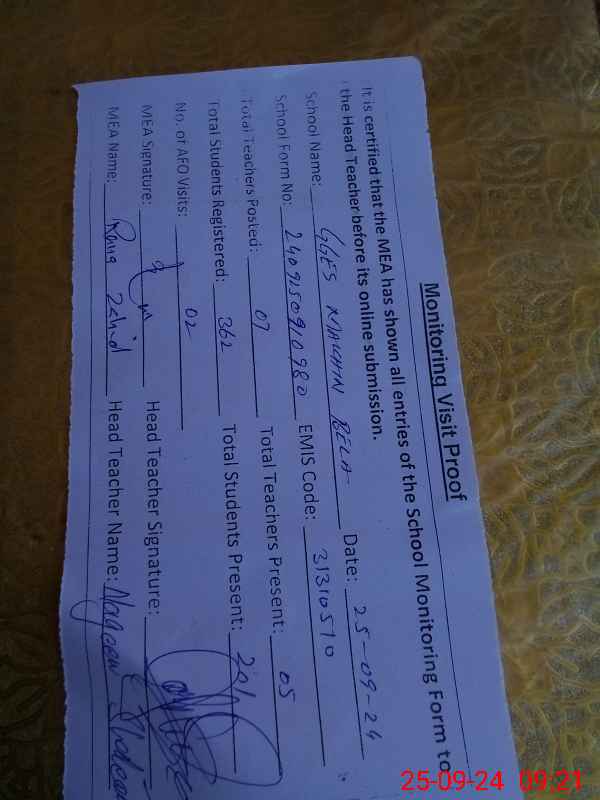 Monitoring Visit Proof
It is certified that the MEA has shown all entries of the School Monitoring Form to
the Head Teacher before its online submission.
School Name: GGES Date: 25-09-24
School Form No: 2409150910980 EMIS Code: 31310510
Total Teachers Posted: 07 Total Teachers Present: 05
Total Students Registered: 362 Total Students Present:
No. of AEO Visits: 02
MEA Signature: Head Teacher Signature:
MEA Name: Rana Zahid Head Teacher Name:
25-09-24 09:21